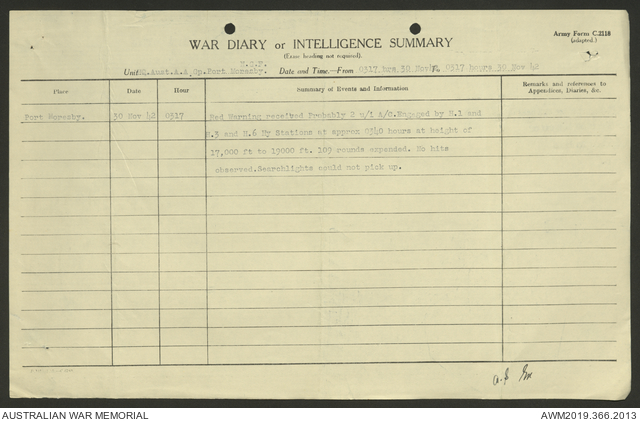 Army Form C.2118
(adapted.)
WAR DIARY or INTELLIGENCE SUMMARY
(Erase heading not required).
Unit HQ.Aust.A.A Gp.Port Moresby. Date and Time.—From 0317 hrs 30 Nov 0517 hours 30 Nov 42
Place Date Hour Summary of Events and Information Remarks and references to Appendices, Diaries, &c.
Port Moresby. 30 Nov 42 0317 Red Warning received Probably 2 u/i A/C.Engaged by H.1 and
H.3 and H.6 Hy Stations at approx 0340 hours at height of
17,000 ft to 19000 ft. 109 rounds expended. No hits
observed.Searchlights could not pick up.
AUSTRALIAN WAR MEMORIAL
AWM2019.366.2013